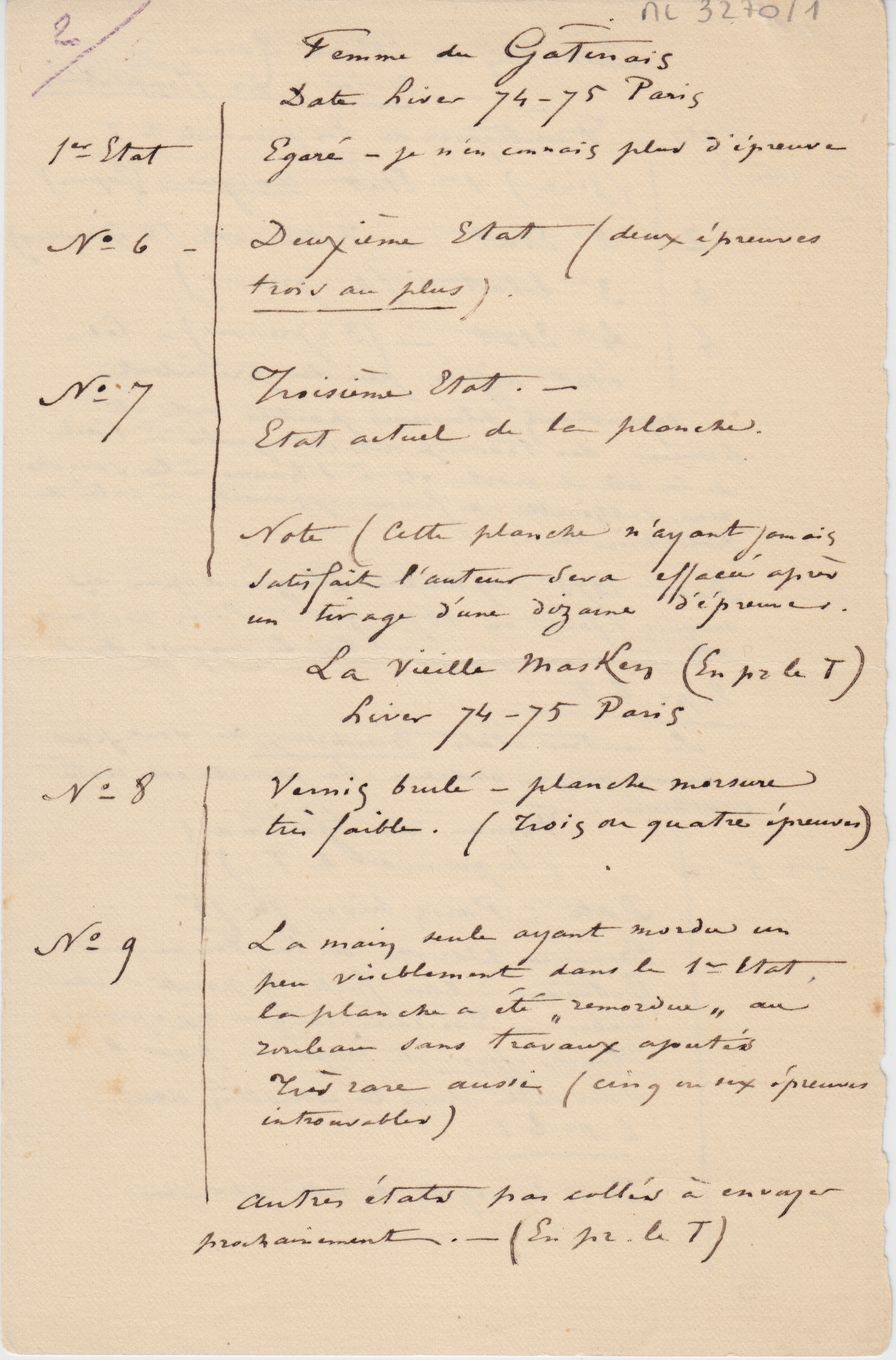 ML 3270/1
2
Femme du Gâtinais
Date hiver 74-75 Paris
1er Etat Egaré - je n'en connais plus d'épreuve
No 6 - Deuxième Etat (deux épreuves
trois au plus).
No 7 Troisième Etat. -
Etat actuel de la planche.
Note (Cette planche n'ayant jamais
satisfait l'auteur sera effacée après
un tirage d'une dizaine d'épreuves.
La Vieille Masken (En pr le T)
hiver 74-75 Paris
No 8 Vernis brulé - planche morsure
très faible. (Trois ou quatre épreuves)
No 9 La main seule ayant mordu un
peu visiblement dans le 1er Etat,
la planche a été „remordue„ au
rouleau sans travaux ajoutés
Très rare aussi (cinq ou six épreuves
introuvables)
autres états pas collés à envoyer
prochainement. - (En pr. le T)